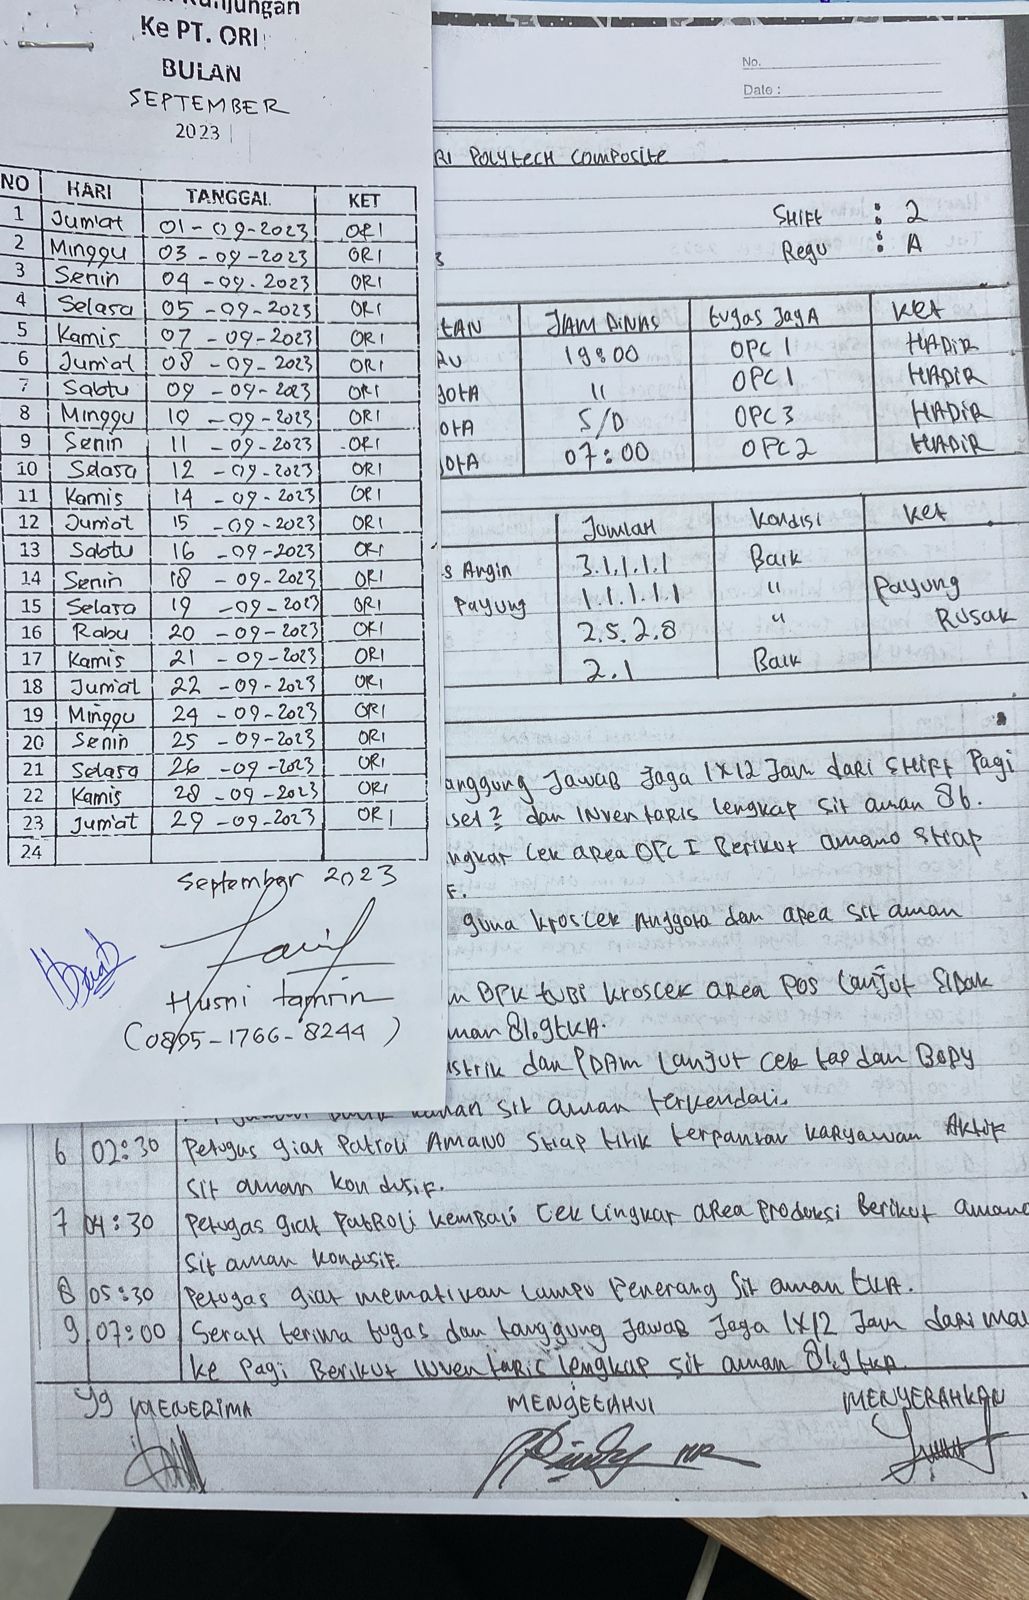 Kunjungan
Ke PT. ORI
BULAN
SEPTEMBER
2023
NO HARI TANGGAL KET
1 Jum'at 01-09-2023 ORI
2 Minggu 03-09-2023 ORI
3 Senin 04-09-2023 ORI
4 Selasa 05-09-2023 ORI
5 Kamis 07-09-2023 ORI
6 Jum'at 08-09-2023 ORI
7 Sabtu 09-09-2023 ORI
8 Minggu 10-09-2023 ORI
9 Senin 11-09-2023 ORI
10 Selasa 12-09-2023 ORI
11 Kamis 14-09-2023 ORI
12 Jum'at 15-09-2023 ORI
13 Sabtu 16-09-2023 ORI
14 Senin 18-09-2023 ORI
15 Selasa 19-09-2023 ORI
16 Rabu 20-09-2023 ORI
17 Kamis 21-09-2023 ORI
18 Jum'at 22-09-2023 ORI
19 Minggu 24-09-2023 ORI
20 Senin 25-09-2023 ORI
21 Selasa 26-09-2023 ORI
22 Kamis 28-09-2023 ORI
23 Jum'at 29-09-2023 ORI
24
September 2023
Husni tamrin
(0895-1766-8244)
No.
Date :
RI POLYtECH COMPOSITE
SHIFT : 2
Regu : A
tAN JAM DINAS tugas JAGA KET
RU 19:00 OPC 1 HADIR
GOtA 11 OPC 1 HADIR
OtA S/D OPC 3 HADIR
GOtA 07:00 OPC 2 HADIR
Jumlah Kondisi KET
s Angin 3.1.1.1.1 Baik
Payung 1.1.1.1.1 " Payung
2.5.2.8 " Rusak
2.1 Baik
anggung Jawab Jaga 1x12 Jam dari SHIFT Pagi
dan Inventaris lengkap sit aman 86.
ngkar Cek area OPC I Berikut amano Stiap
F.
guna kroscek Anggota dan area sit aman
BPK tubi kroscek area POS lanjut Sidak
man 81.9tKA.
istrik dan PDAM lanjut cek tap dan Body
aman sit aman terkendali.
6 02:30 Petugas giat Patroli AMANO Stiap titik terpantau karyawan Aktif
sit aman kondusif.
7 04:30 Petugas giat Patroli kembali Cek lingkar area Produksi Berikut amano
Sit aman kondusif.
8 05:30 Petugas giat mematikan lampu Penerang Sit aman tKA.
9 07:00 Serah terima tugas dan tanggung Jawab Jaga 1x12 Jam dari mal
ke Pagi Berikut Inventaris lengkap sit aman 81.9tKA
Yg MENERIMA MENGETAHUI MENYERAHKAN